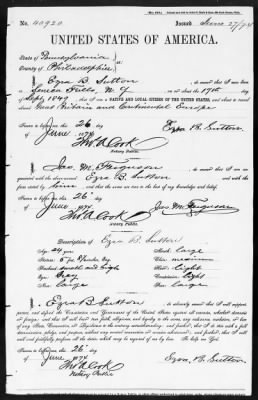 No. 40920 Issued June 27/74
UNITED STATES OF AMERICA.
State of Pennsylvania
County of Philadelphia
I, Ezra B. Sutton, do swear that I was born
in Seneca Falls, N.Y. on or about the 17th day
of Sept 1849; that I am a NATIVE AND LOYAL CITIZEN OF THE UNITED STATES, and about to travel
Great Britain and Continental Europe
Sworn to before me, this 26
day of June 1874 Ezra B. Sutton
Thos A Cook
Notary Public.
I, Jas. M. Ferguson, do swear that I am
acquainted with the above-named Ezra B Sutton and with the
facts stated by him, and that the same are true to the best of my knowledge and belief.
Sworn to before me, this 26
day of June 1874 Jas. M. Ferguson
Thos A Cook
Notary Public.
Description of Ezra B. Sutton
Age: 24 years Mouth: large
Stature: 5 feet 8 inches, Eng. Chin: medium
Forehead: small and high Hair: light
Eyes: gray Complexion: light
Nose: large Face: large
I, Ezra B Sutton, do solemnly swear that I will support,
protect, and defend the Constitution and Government of the United States against all enemies, whether domestic or
foreign; and that I will bear true faith, allegiance, and loyalty to the same, any ordinance, resolution, or law
of any State, Convention, or Legislature to the contrary notwithstanding; and further, that I do this with a full
determination, pledge, and purpose, without any mental reservation or evasion whatsoever; and further, that I will
well and faithfully perform all the duties which may be required of me by law. So help me God.
Sworn to before me, this 26
day of June 1874 Ezra B. Sutton
Thos A Cook
Notary Public